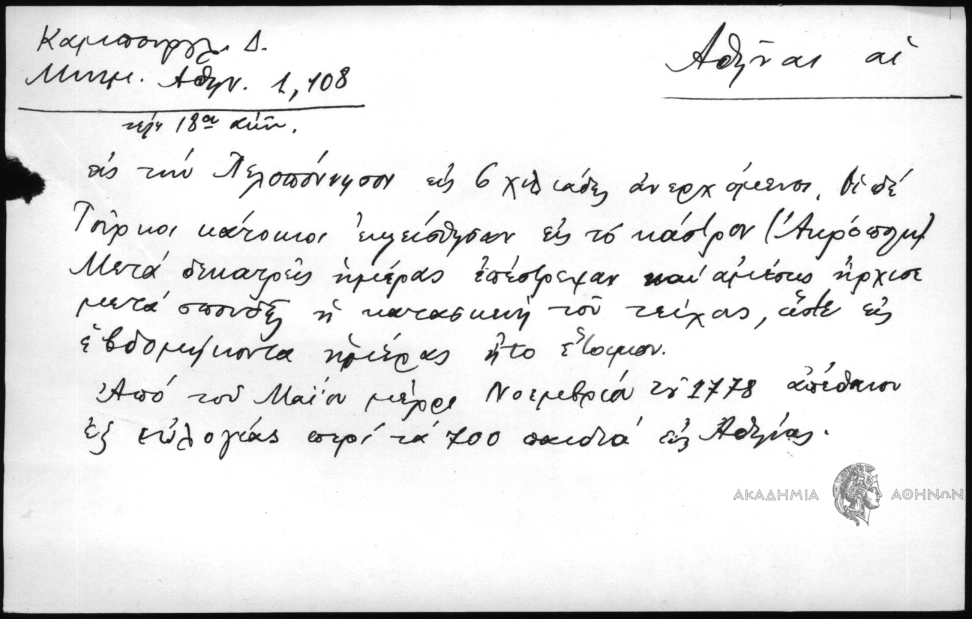 Καμπούρογλ. Δ. Ἀθῆναι αἱ
Μνημ. Ἀθην. 1, 108
τέλη 18ου αἰῶν.
εἰς τὴν Πελοπόννησον εἰς 6 χιλιάδες ἀνερχόμενοι, οἱ δὲ
Τοῦρκοι κάτοικοι ἐκλείσθησαν εἰς τὸ κάστρον (Ἀκρόπολη)
Μετὰ δεκατρεῖς ἡμέρας ἐπέστρεψαν καὶ ἀμέσως ἤρχισε
μετὰ σπουδῆς ἡ κατασκευὴ τοῦ τείχους, ὥστε εἰς
ἑβδομήκοντα ἡμέρας ἦτο ἕτοιμον.
Ἀπὸ τοῦ Μαΐου μέχρι Νοεμβρίου τοῦ 1778 ἀπέθανον
ἐξ εὐλογίας περὶ τὰ 700 παιδιὰ εἰς Ἀθήνας.
ΑΚΑΔΗΜΙΑ ΑΘΗΝΩΝ